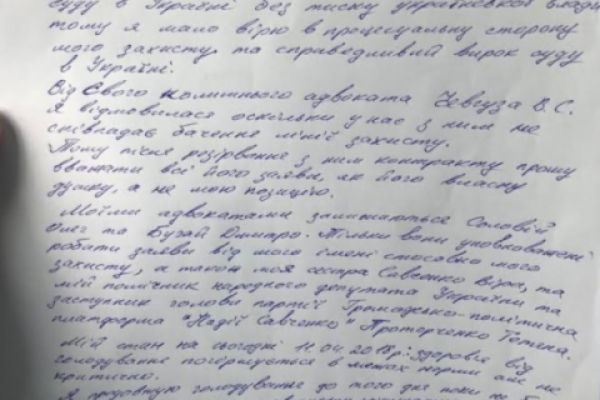 суду в Україні без тиску української влади
тому я мало вірю в процесуальну сторону
мого захисту та справедливий вирок суду
в Україні.
Від Свого колишнього адвоката Чевгуза В.С.
Я відмовилася оскільки у нас з ним не
співпадає бачення лінії захисту.
Тому після розірвання з ним контракту прошу
вважати всі його заяви, як його власну
думку, а не мою позицію.
Моїми адвокатами залишаються Соловій
Олег та Бузай Дмитро. Тільки вони уповноважені
робити заяви від мого імені стосовно мого
захисту, а також моя сестра Савченко Віра, та
мій помічник народного депутата України та
заступник голови партії Громадсько-політична
платформа "Надії Савченко" Проторченко Тетяна.
Мій стан на сьогодні 11.04.2018р: здоровіє від
голодування погіршується в межах норми але не
критично.
Я продовжую голодування до того дня поки не